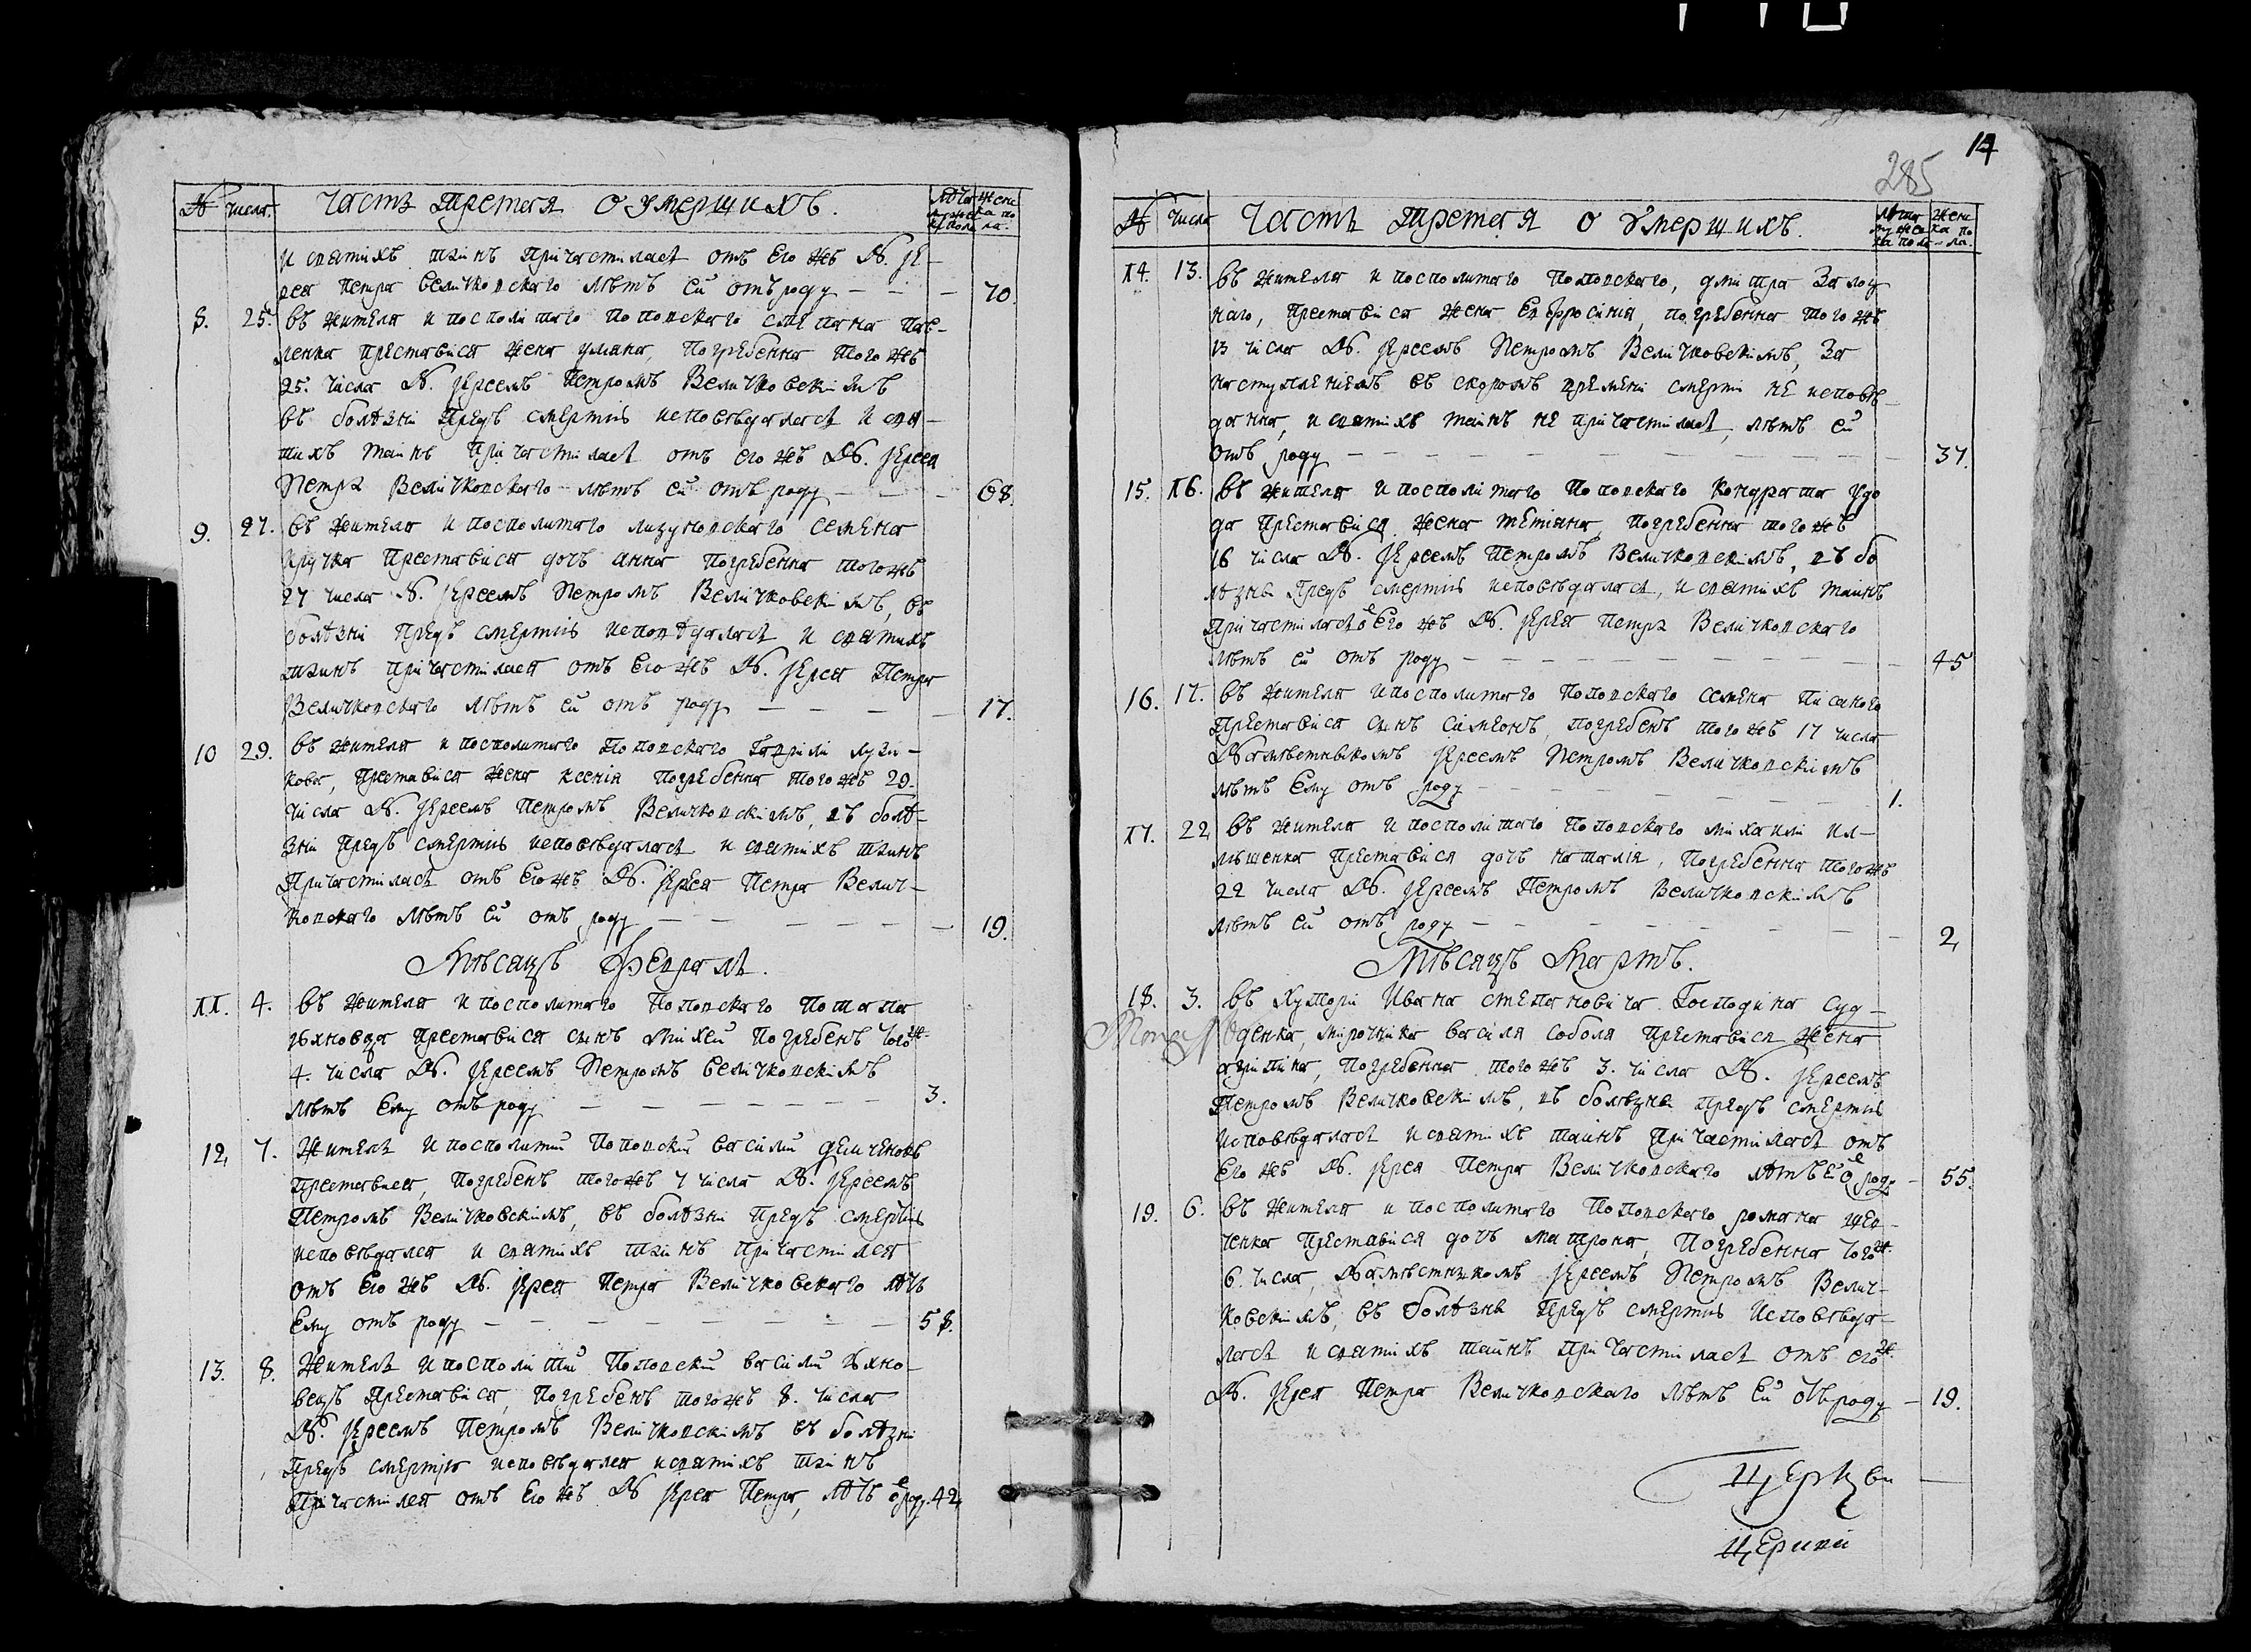 № числа. Часть третая о умерщихъ. Лѣта мужеска пола женска пола.
и святихъ таинъ причастилась отъ его жъ Н. іе-
рея Петра Величковского лѣтъ ей отъ роду — 70.
8. 25. въ жителя и посполитого поповского степана пав-
ленка преставися жена уляна, погребенна того жъ
25. числа Н. іереемъ Петромъ Величковскімъ
въ болѣзні предъ смертію исповѣдалась и свя-
тихъ таинъ причастілась отъ его жъ Н. іерея
Петра Величковского лѣтъ ей отъ роду — 68.
9. 27. въ жителя и посполитого лизуновского семена
кручка преставися дочъ анна погребенна того жъ
27 числа Н. іереемъ Петромъ Величковскімъ, въ
болѣзні предъ смертію исповѣдалась и святихъ
таинъ причастілася отъ его жъ Н. іерея Петра
Величковского лѣтъ ей отъ роду — 17.
10 29. въ жителя и посполитого поповского гаврили
кова, преставися жена ксенія погребенна того жъ 29.
числа Н. іереемъ Петромъ Величковскімъ, въ болѣ-
зні предъ смертію исповѣдалась и святіхъ таинъ
причастілась отъ его жъ Н. іерея Петра Велич-
ковского лѣтъ ей отъ роду — 19.
Мѣсяцъ Февраль.
11. 4. въ жителя и посполитого поповского потапа
яхновца преставися синъ Міхей погребенъ того ж
4. числа Н. іереемъ Петромъ Величковскімъ
лѣтъ ему отъ роду — 3.
12, 7. Житель и посполитий поповский василий демченокъ
преставися, погребенъ того жъ 7 числа Н. іереемъ
Петромъ Величковскімъ, въ болѣзні предъ смертію
исповѣдался и святіхъ таинъ причастілся
отъ его жъ Н. іерея Петра Величковского лѣтъ
ему отъ роду — 58.
13. 8. Житель и посполітий поповский василий яхно-
вецъ преставися, погребенъ того жъ 8. числа
Н. іереемъ Петромъ Величковскімъ въ болѣзні
предъ смертію исповѣдался и святіхъ таинъ
причастілся отъ его жъ Н іерея Петра, лѣтъ о роду. 42,
14
285
№ числа Часть третая о умерщихъ. Лѣта мужеска пола женска пола.
14. 13. въ жителя и посполитого поповского, дмітра
ного, преставися жена евфросинія, погребенна того жъ
13 числа Н. іереемъ Петромъ Величковскімъ, за
наступленіемъ въ скоромъ времені смерті не исповѣ-
данна, и святіхъ таинъ не причастілась, лѣтъ ей
отъ роду — 37.
15. 16. въ жителя и посполітого поповского кондрата удо
да преставися жена тетяна, погребенна того жъ
16 числа Н. іереемъ Петромъ Величковскімъ, въ бо
лѣзнѣ предъ смертію исповѣдалась, и святіхъ таинъ
причастілась о его жъ Н. іерея Петра Величковского
лѣтъ ей отъ роду — 45
16. 17. въ жителя и посполитого поповского семена писаного
преставися синъ Сімеонъ, погребенъ того жъ 17 числа
Намѣстникомъ іереемъ Петромъ Величковскімъ
лѣтъ ему отъ роду — 1.
17. 22 въ жителя и посполітого поповского міхаилі ил-
ляшенка преставися дочъ наталія, погребенна того жъ
22 числа Н. іереемъ Петромъ Величковскімъ
лѣтъ ей отъ роду — 2,
Мѣсяцъ Мартъ.
18. 3. въ хуторі Ивана степановича Господина Суд-
денка, мірошника василя соболя преставися жена
агріпіна, погребенная того жъ 3. числа Н. іереемъ
Петромъ Величковскімъ, въ болѣзнѣ предъ смертію
исповѣдалась и святіхъ таинъ причастілась отъ
его жъ Н. іерея Петра Величковского лѣтъ ей о роду — 55.
19. 6. въ жителя и посполитого поповского романа шев-
ченка преставися дочъ матрона, погребенна того ж
6. числа, Намѣстникомъ іереемъ Петромъ Велич-
ковскімъ, въ болѣзнѣ предъ смертію исповѣда-
лась и святіхъ таинъ причастілась отъ его ж
Н. іерея Петра Величковского лѣтъ ей отъ роду — 19.
Церкви